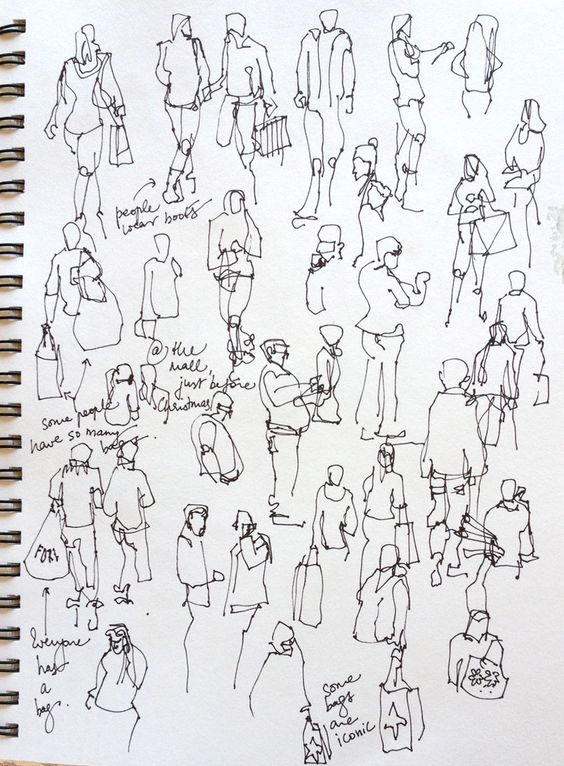 people
wear boots
@ the
mall,
just before
Christmas
some people
have so many
bags.
Everyone
has
a
bag.
some
bags
are
iconic